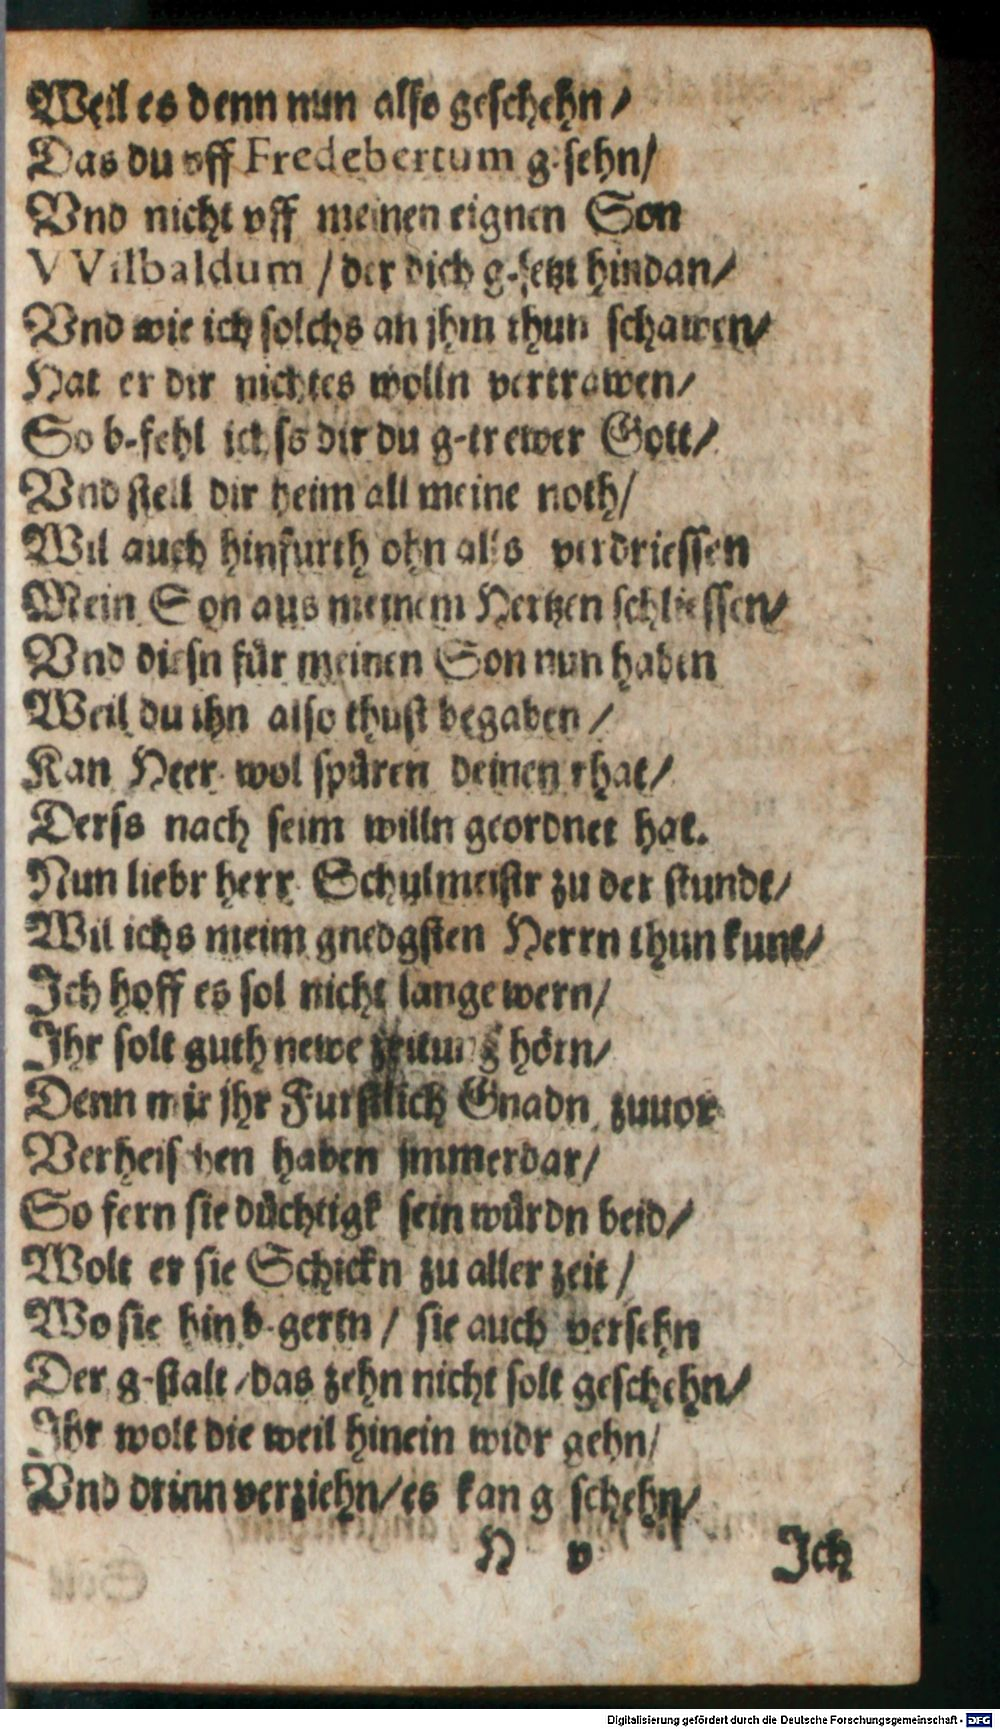 Weil es denn nun also geschehn /
Das du vff Fredebertum g-sehn /
Vnd nicht vff meinen eignen Son
VVilbaldum / der dich g-setzt hindan /
Vnd wie ich solchs an jhm thun schawen /
Hat er dir nichtes wolln vertrawen /
So b-fehl ichs dir du g-trewer Gott /
Vnd stell dir heim all meine noth /
Wil auch hinfurth ohn alls verdriessen
Mein Son aus meinem Hertzen schliessen /
Vnd diesn für meinen Son nun haben
Weil du ihn also thust begaben /
Kan Herr wol spüren deinen rhat /
Derss nach seim willn geordnet hat.
Nun liebr herr Schulmeistr zu der stundt /
Wil ichs meim gnedgsten Herrn thun kunt /
Ich hoff es sol nicht lange wern /
Ihr solt guth newe zeitung hörn /
Denn mir jhr Furstlich Gnadn zuuor
Verheischen haben jmmerdar /
So fern sie düchtigk sein würdn beid /
Wolt er sie Schickn zu aller zeit /
Wo sie hin b-gertn / sie auch versehn
Der g-stalt / das zehn nicht solt geschehn /
Ihr wolt die weil hinein widr gehn /
Vnd drinn verziehn / es kan g schehn /
H v Ich
Digitalisierung gefördert durch die Deutsche Forschungsgemeinschaft - DFG